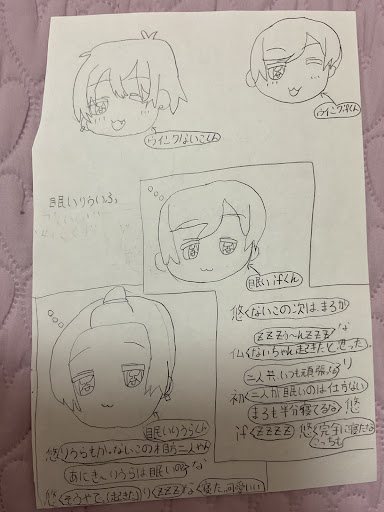 ウインクないこくん
ウインクifくん
眠いりういふ
眠いifくん
眠いりうらくん
悠くないこの次は、まろか
zzzう〜んzzzな
仏くないちゃん起きたと思った
二人共、いつも頑張ってるり
初く二人が眠いのは仕方ない
まろも半分寝てるな 悠
ifくzzzz 悠く完全に寝たな
こっちも
悠りうらもか。ないこの横ら二人やん
あにき〜りうらは眠いのな
悠くそうやて、(起きた)りくzzzなく寝た、可愛いい